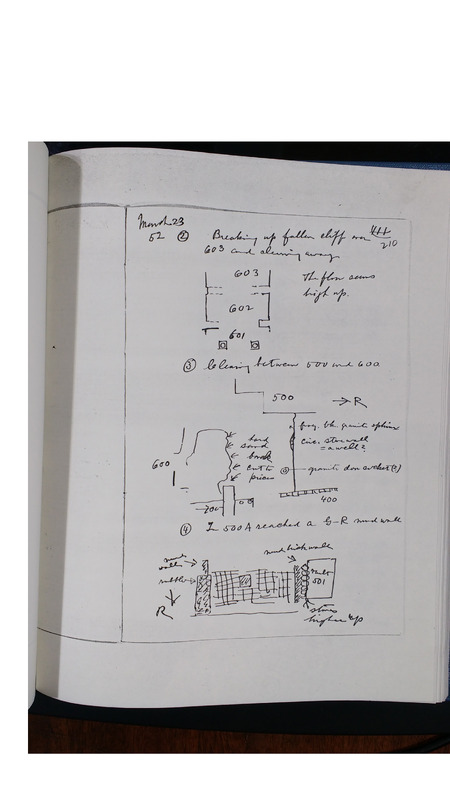 March 23
52 ② Breaking up fallen cliff over 444/210
603 and clearing away.
603
The floor seems
high up.
602
601
③ Clearing between 500 and 600
500
→ R
frag. blk. granite sphinx
circ. stone wall
= a well?
hard
sand
brook
cut to
pieces
granite door socket (?)
600
700
400
④ In 500A reached a G-R mud wall
mud
wall
mud brick wall
rubble
R
501
stones
higher up